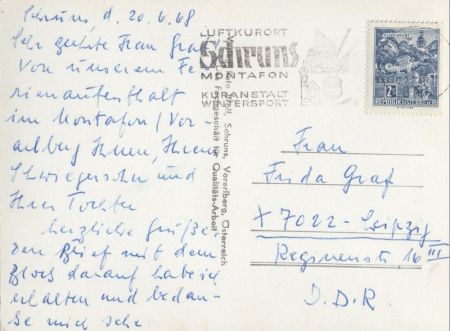 Schruns, d. 20.6.68
Sehr geehrte Frau Graf
Von unserem Fe-
rienaufenthalt
im Montafon/Vor-
arlberg Ihnen, Ihrem
Schwiegersohn und
Ihrer Tochter
herzliche Grüße.
Den Brief mit dem
Blocs darauf habe ich
erhalten und bedan-
ke mich sehr
LUFTKURORT
Schruns
MONTAFON
KURANSTALT
WINTERSPORT
Schruns, Vorarlberg, Österreich
Fachgeschäft für Qualitäts-Arbeit
REPUBLIK ÖSTERREICH
Frau
Frida Graf
X 7022 - Leipzig
Reginenstr, 16 III
D.D.R.